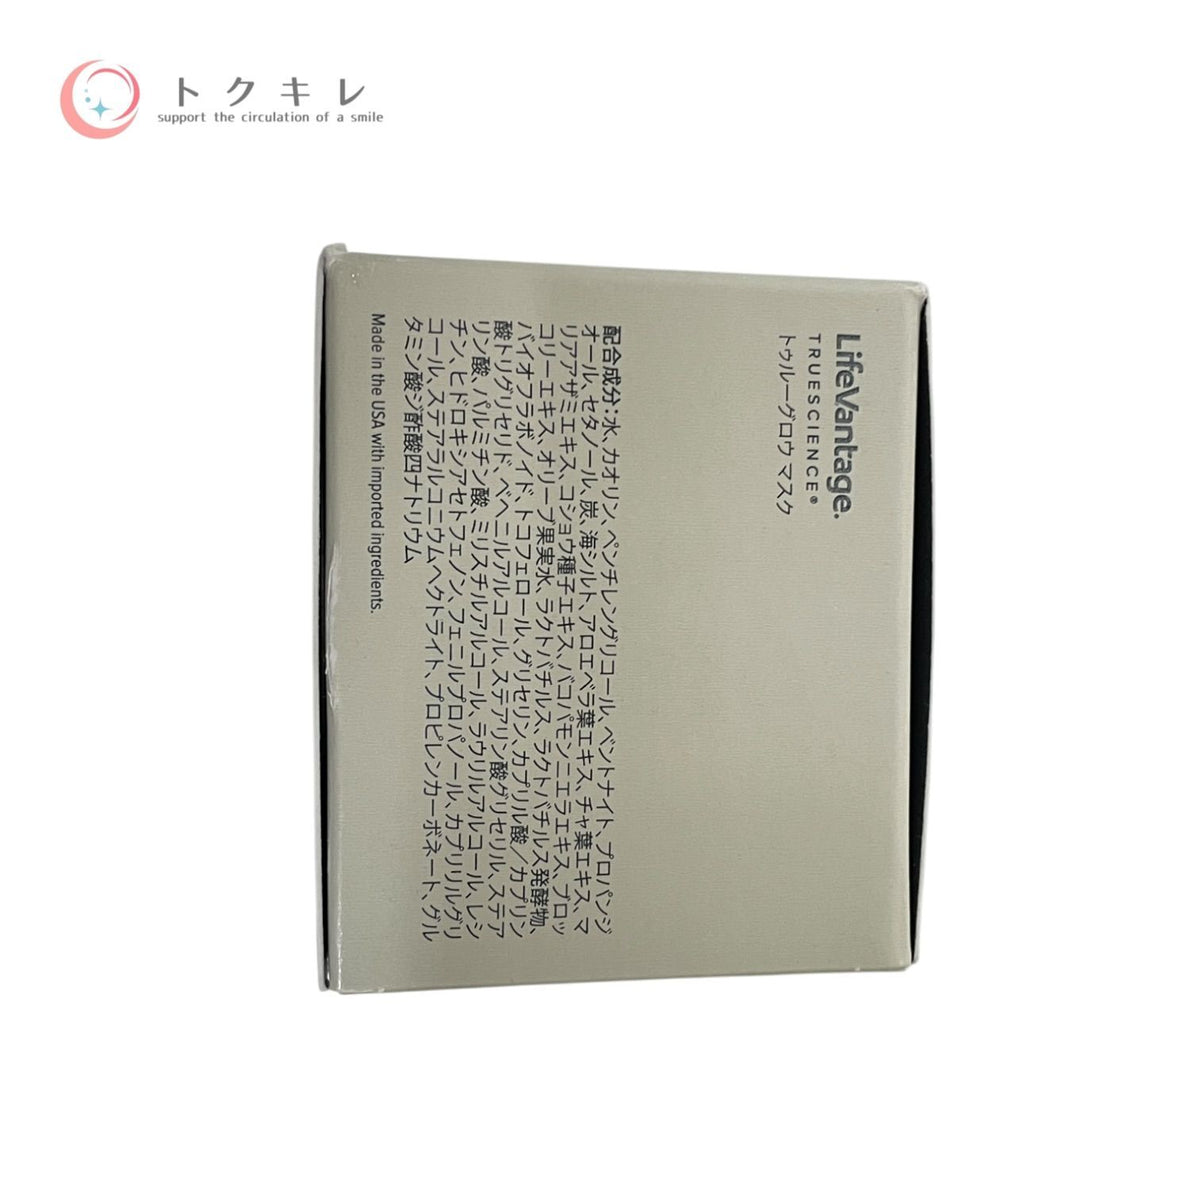 トクキレ
support the circulation of a smile
LifeVantage.
TRUESCIENCE®
トゥルーグロウ マスク
配合成分：水、カオリン、ペンチレングリコール、ベントナイト、プロパンジ
オール、セタノール、炭、海シルト、アロエベラ葉エキス、チャ葉エキス、マ
リアアザミエキス、コショウ種子エキス、バコパモンニエラエキス、ブロッ
コリーエキス、オリーブ果実水、ラクトバチルス、ラクトバチルス発酵物、
バイオフラボノイド、トコフェロール、グリセリン、カプリル酸／カプリン
酸トリグリセリド、ベヘニルアルコール、ステアリン酸グリセリル、ステア
リン酸、パルミチン酸、ミリスチルアルコール、ラウリルアルコール、レシ
チン、ヒドロキシアセトフェノン、フェニルプロパノール、カプリリルグリ
コール、ステアラルコニウムヘクトライト、プロピレンカーボネート、グル
タミン酸ジ酢酸四ナトリウム
Made in the USA with imported ingredients.